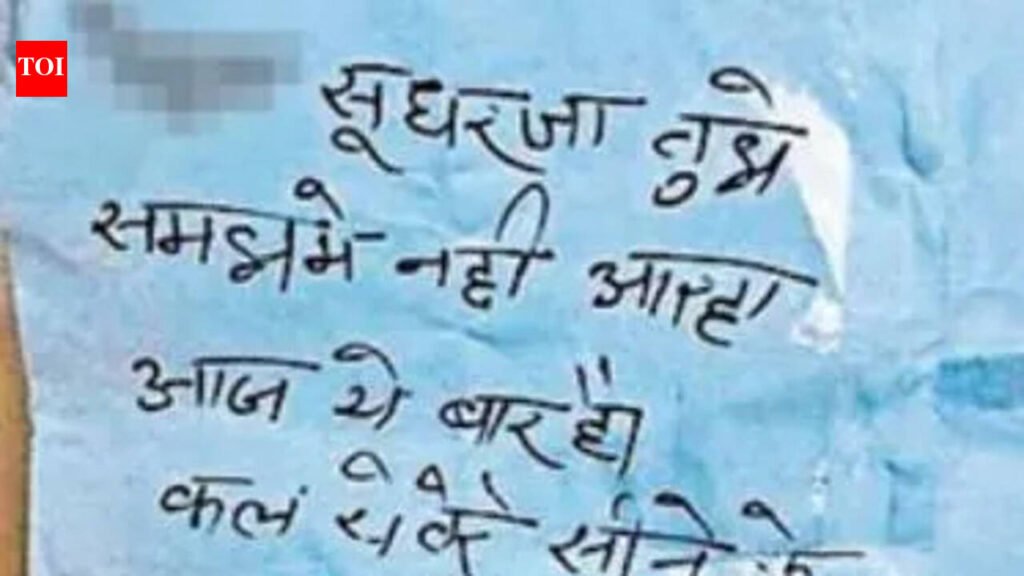 TOI
सूधरजा तुझे
समझमे नही आरहा
आज ये बार है
कल येतेरे सीने के